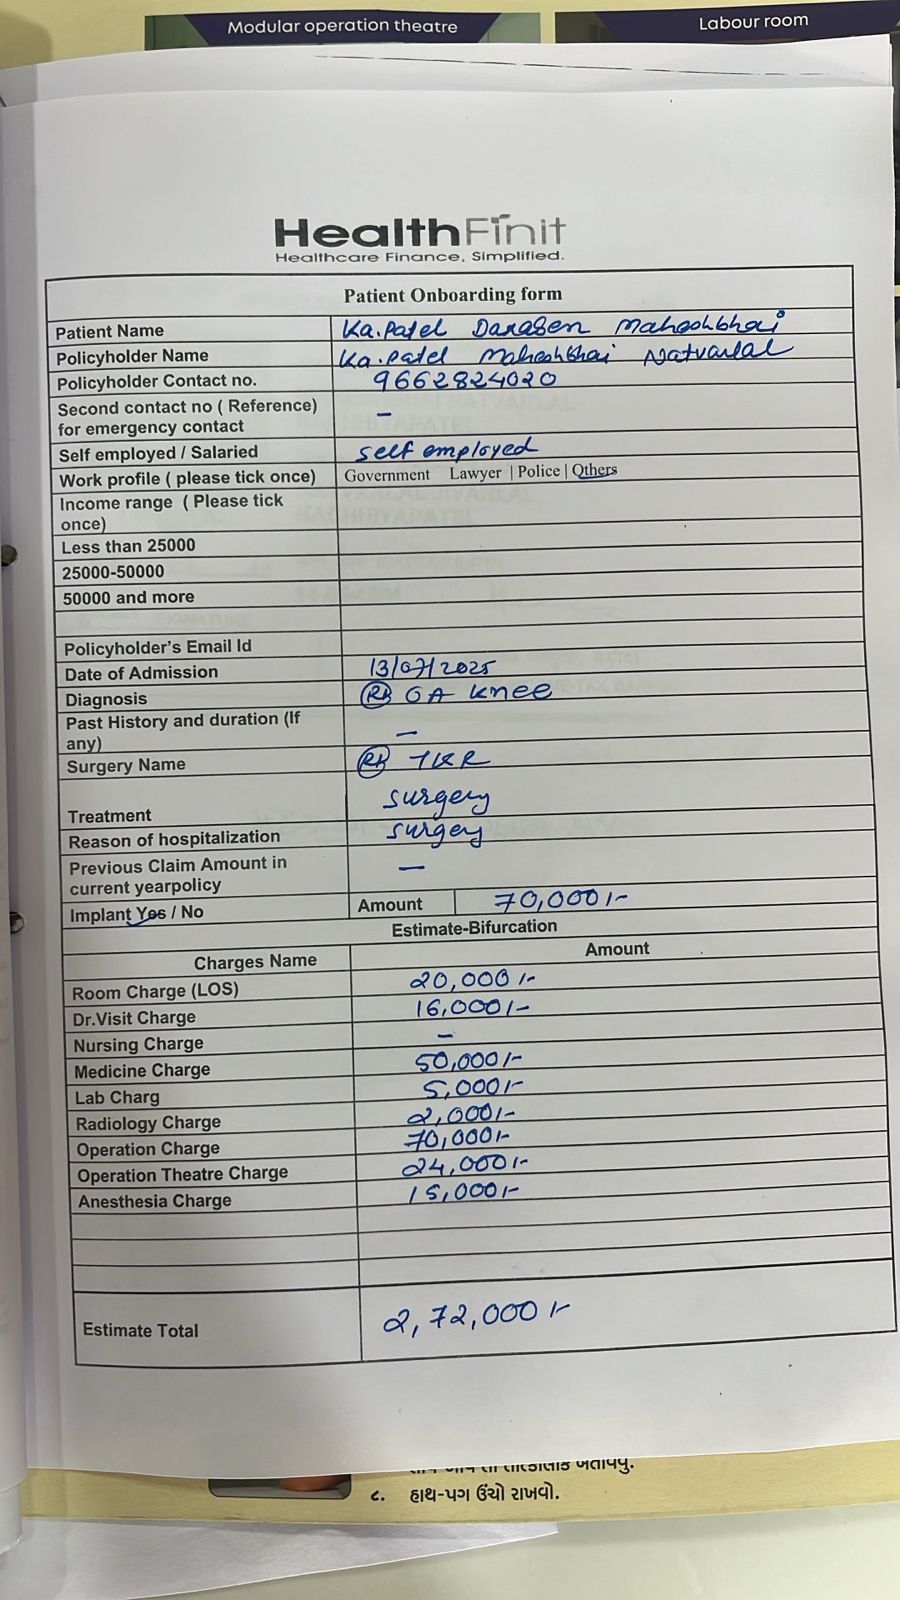 Modular operation theatre
Labour room
HealthFinit
Healthcare Finance, Simplified.
Patient Onboarding form
Patient Name Ka.Patel Daxaben Maheshbhai
Policyholder Name Ka.Patel Maheshbhai Natvarlal
Policyholder Contact no. 9662824020
Second contact no ( Reference) for emergency contact –
Self employed / Salaried self employed
Work profile ( please tick once) Government Lawyer | Police | Others
Income range ( Please tick once)
Less than 25000
25000-50000
50000 and more
Policyholder's Email Id
Date of Admission 13/07/2025
Diagnosis OA Knee
Past History and duration (If any) –
Surgery Name TKR
Treatment surgery
Reason of hospitalization surgery
Previous Claim Amount in current yearpolicy –
Implant Yes / No Amount 70,000/-
Estimate-Bifurcation
Charges Name Amount
Room Charge (LOS) 20,000/-
Dr.Visit Charge 16,000/-
Nursing Charge –
Medicine Charge 50,000/-
Lab Charg 5,000/-
Radiology Charge 2,000/-
Operation Charge 70,000/-
Operation Theatre Charge 24,000/-
Anesthesia Charge 15,000/-
Estimate Total 2,72,000/-
બતાવવુ.
૮. હાથ-પગ ઉંચો રાખવો.